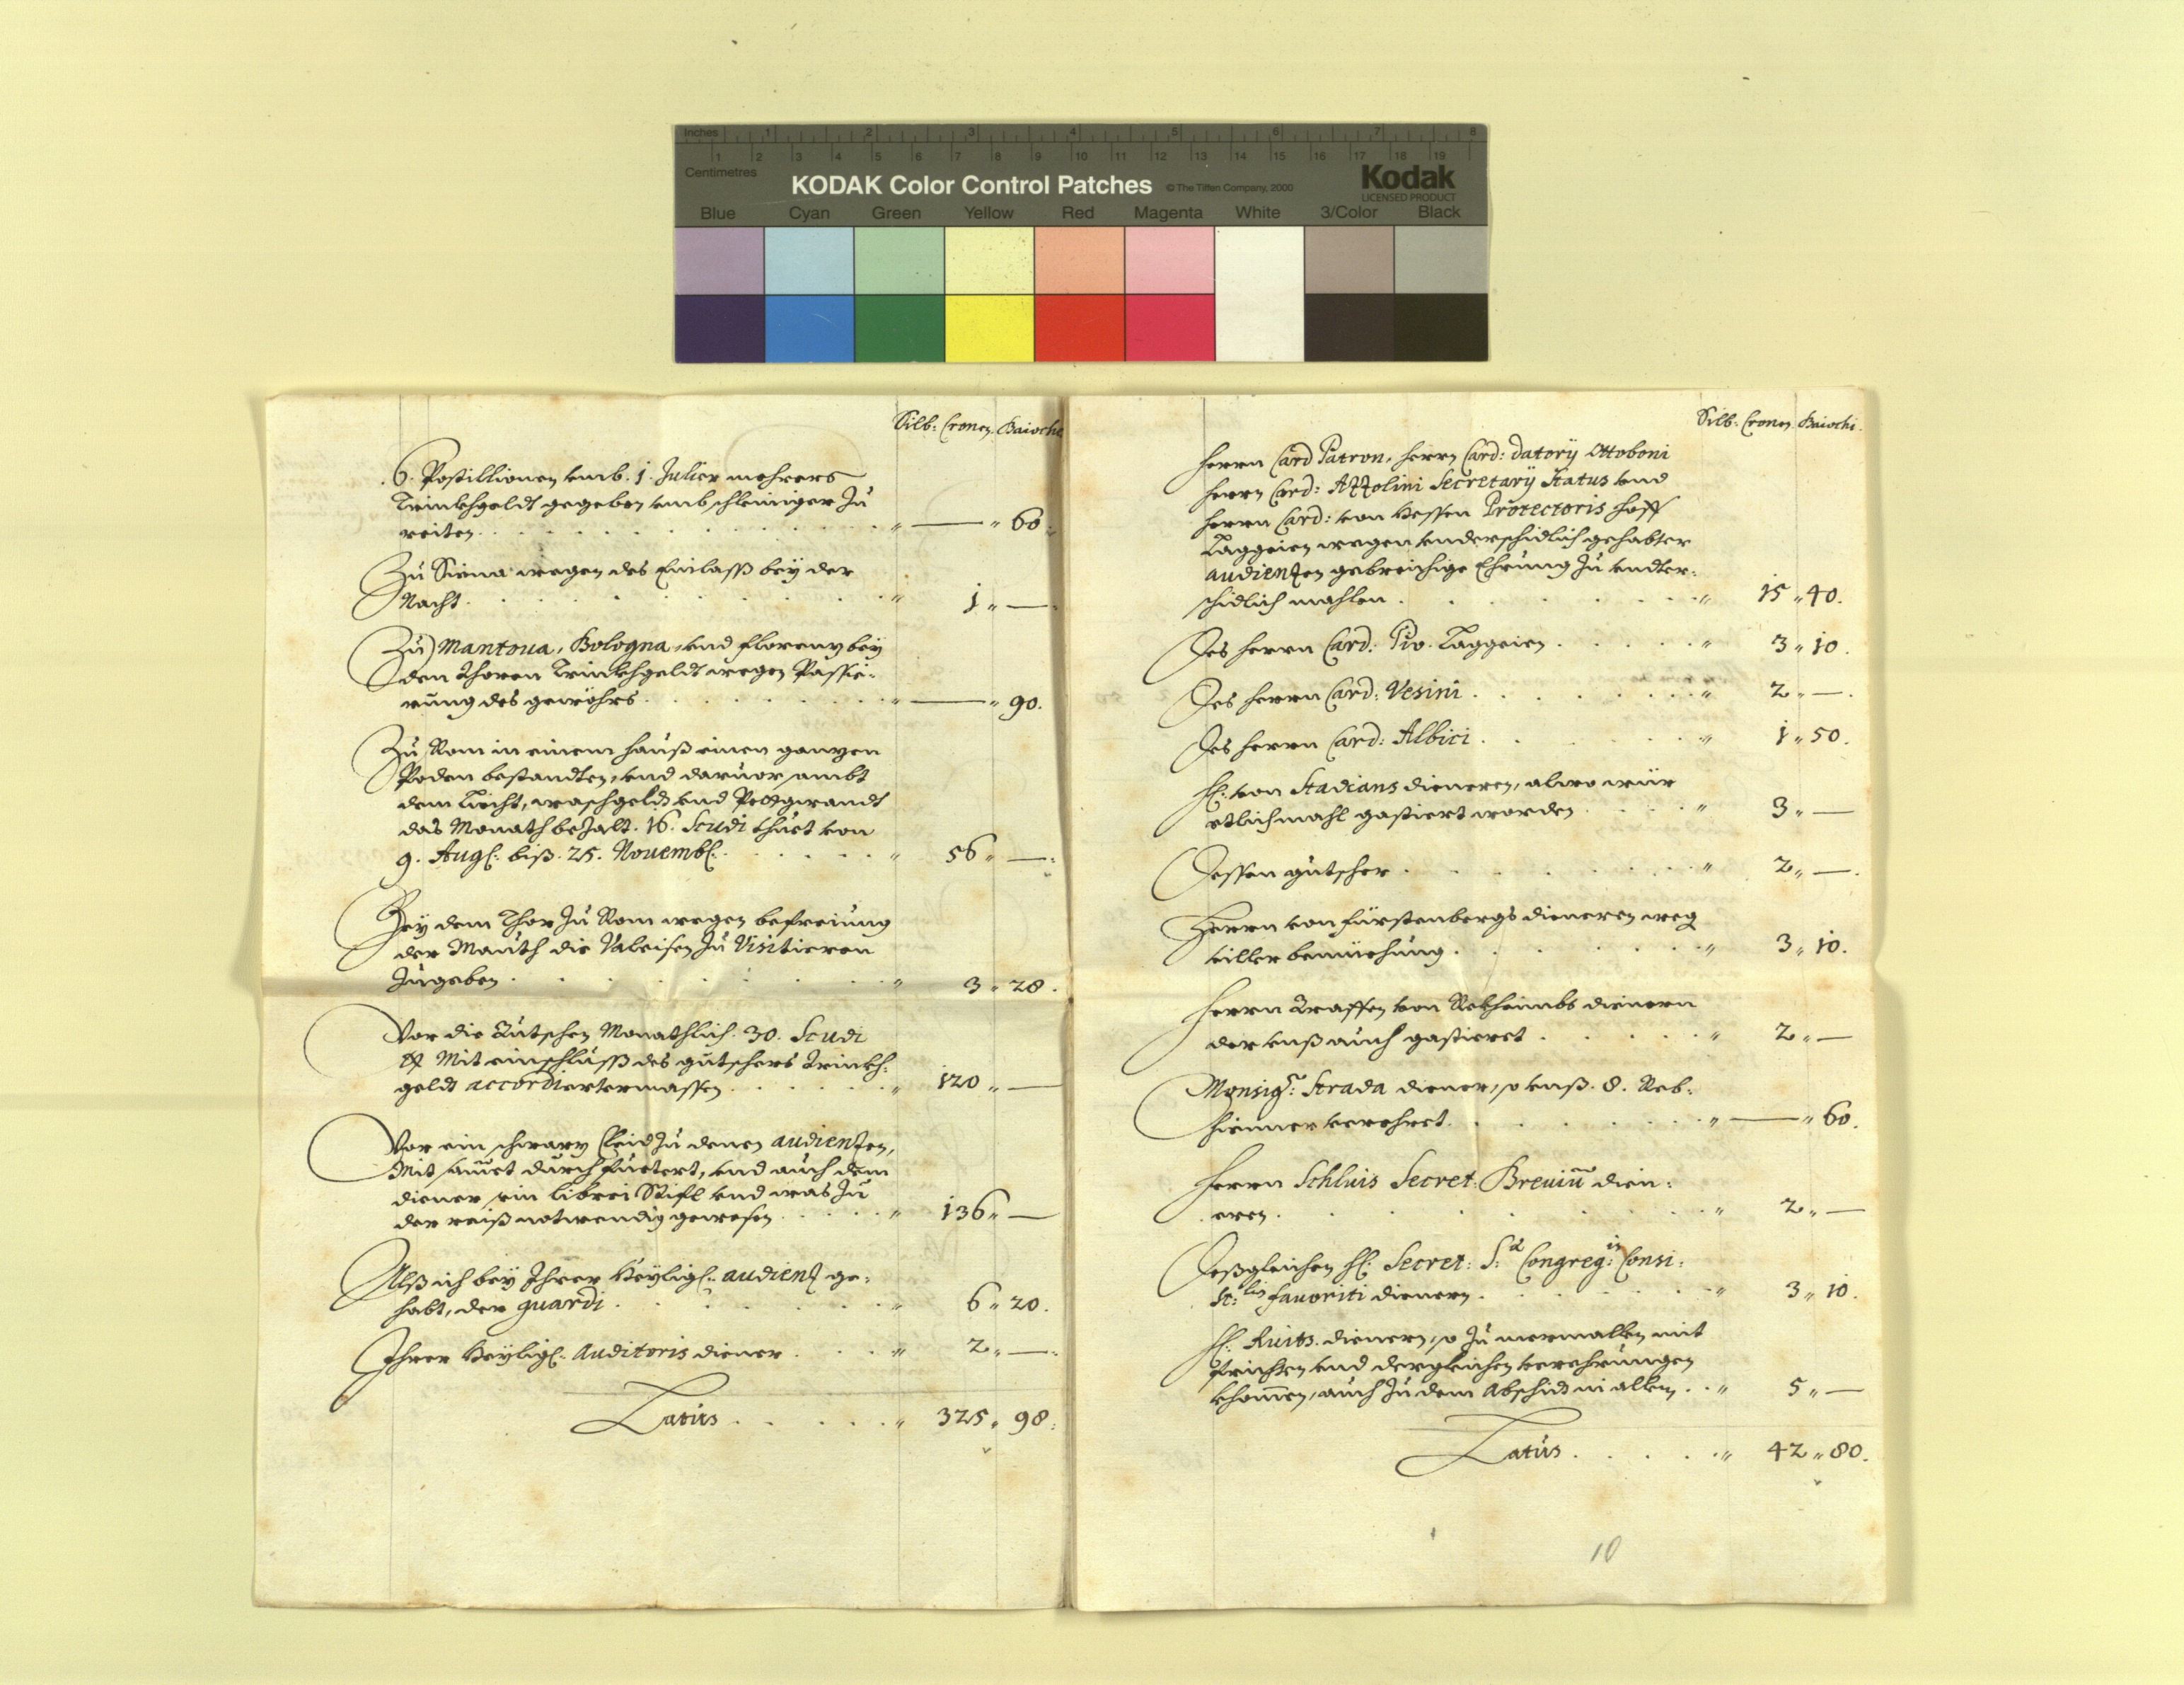 Inches 1 2 3 4 5 6 7 8
1 2 3 4 5 6 7 8 9 10 11 12 13 14 15 16 17 18 19
Centimetres
KODAK Color Control Patches © The Tiffen Company, 2000 Kodak
LICENSED PRODUCT
Blue Cyan Green Yellow Red Magenta White 3/Color Black
Silb: Cronen. Baiochi
6. Postillionen vmb. 1. Julier mehrers
Trinkhgeldt gegeben vmb schleiniger zu
reiten. " — " 60.
Zu Siena wegen des Einlaß bey der
Nacht. " 1 " —
Zu Mantoua, Bologna, vnd Florenz bey
den Thoren Trinkhgeldt wegen Passie=
rung des gewöhrs. " — " 90.
Zu Rom in einem hauß einen ganzen
Poden bestandten, vnd daruor sambt
dem Liecht, waschgeldt vnd Pettgwandt
das Monath bezalt. 16. Scudi thuet von
9. Aug: biß. 25. Nouemb: " 56 " —
Bey dem Thor zu Rom wegen befreiung
der Mauth die Valeisen zu Visitieren
zugeben. " 3 " 28.
Vor die Gutschen Monathlich. 30. Scudi
Mit einschluß des gutschers Trinkh=
geldt accordiertermassen. " 120 " —
Vor ein schwarz Claid zu denen audienzen,
Mit samet durchfüetert, vnd auch dem
diener ein librei Stifl vnd was zu
der raiß notwendig gewesen. " 136 " —
Alß ich bey Ihrer Heylig: audienz ge=
habt, der guardi. " 6 " 20.
Ihrer Heylig: Auditoris diener. " 2 " —
Latus. " 325 " 98.
Silb: Cronen Baiochi.
Herrn Card Patron, herrn Card: datory Ottoboni
herrn Card: Azzolini Secretary Status vnd
herrn Card: von Hessen Protectoris hoff
Laggeien wegen vnderschidlich gehabter
audienzen gebreichige Ehrung zu vndter=
schidlich mahlen. " 15 " 40.
Des herrn Card: Pio. Laggeien. " 3 " 10.
Des herrn Card: Vesini. " 2 " —.
Des herrn Card: Albici. " 1 " 50.
H: von Stadians dieneren, alwo wür
etlichmahl gastiert worden. " 3 " —
Dessen gutscher. " 2 " —.
Herrn von Fürstenbergs dieneren weg
viller bemüehung. " 3 " 10.
Herrn Graffen von dienern
der vnß auch gastieret. " 2 " —
Monsigr: Strada diener, so vnß. 8. Reb=
hienner verehret. " — " 60.
Herrn Schluis Secret: Breuiu dien=
eren. " 2 " —
Deßgleichen H: Secret: Sa Congreg:is Consi=
st:lis fauoriti dienern. " 3 " 10.
H: dienern, so zu mermallen mit
frichten vnd dergleichen verehrungen
khomen, auch zu dem Abschid in allem. " 5 " —
Latus. " 42 " 80.
10